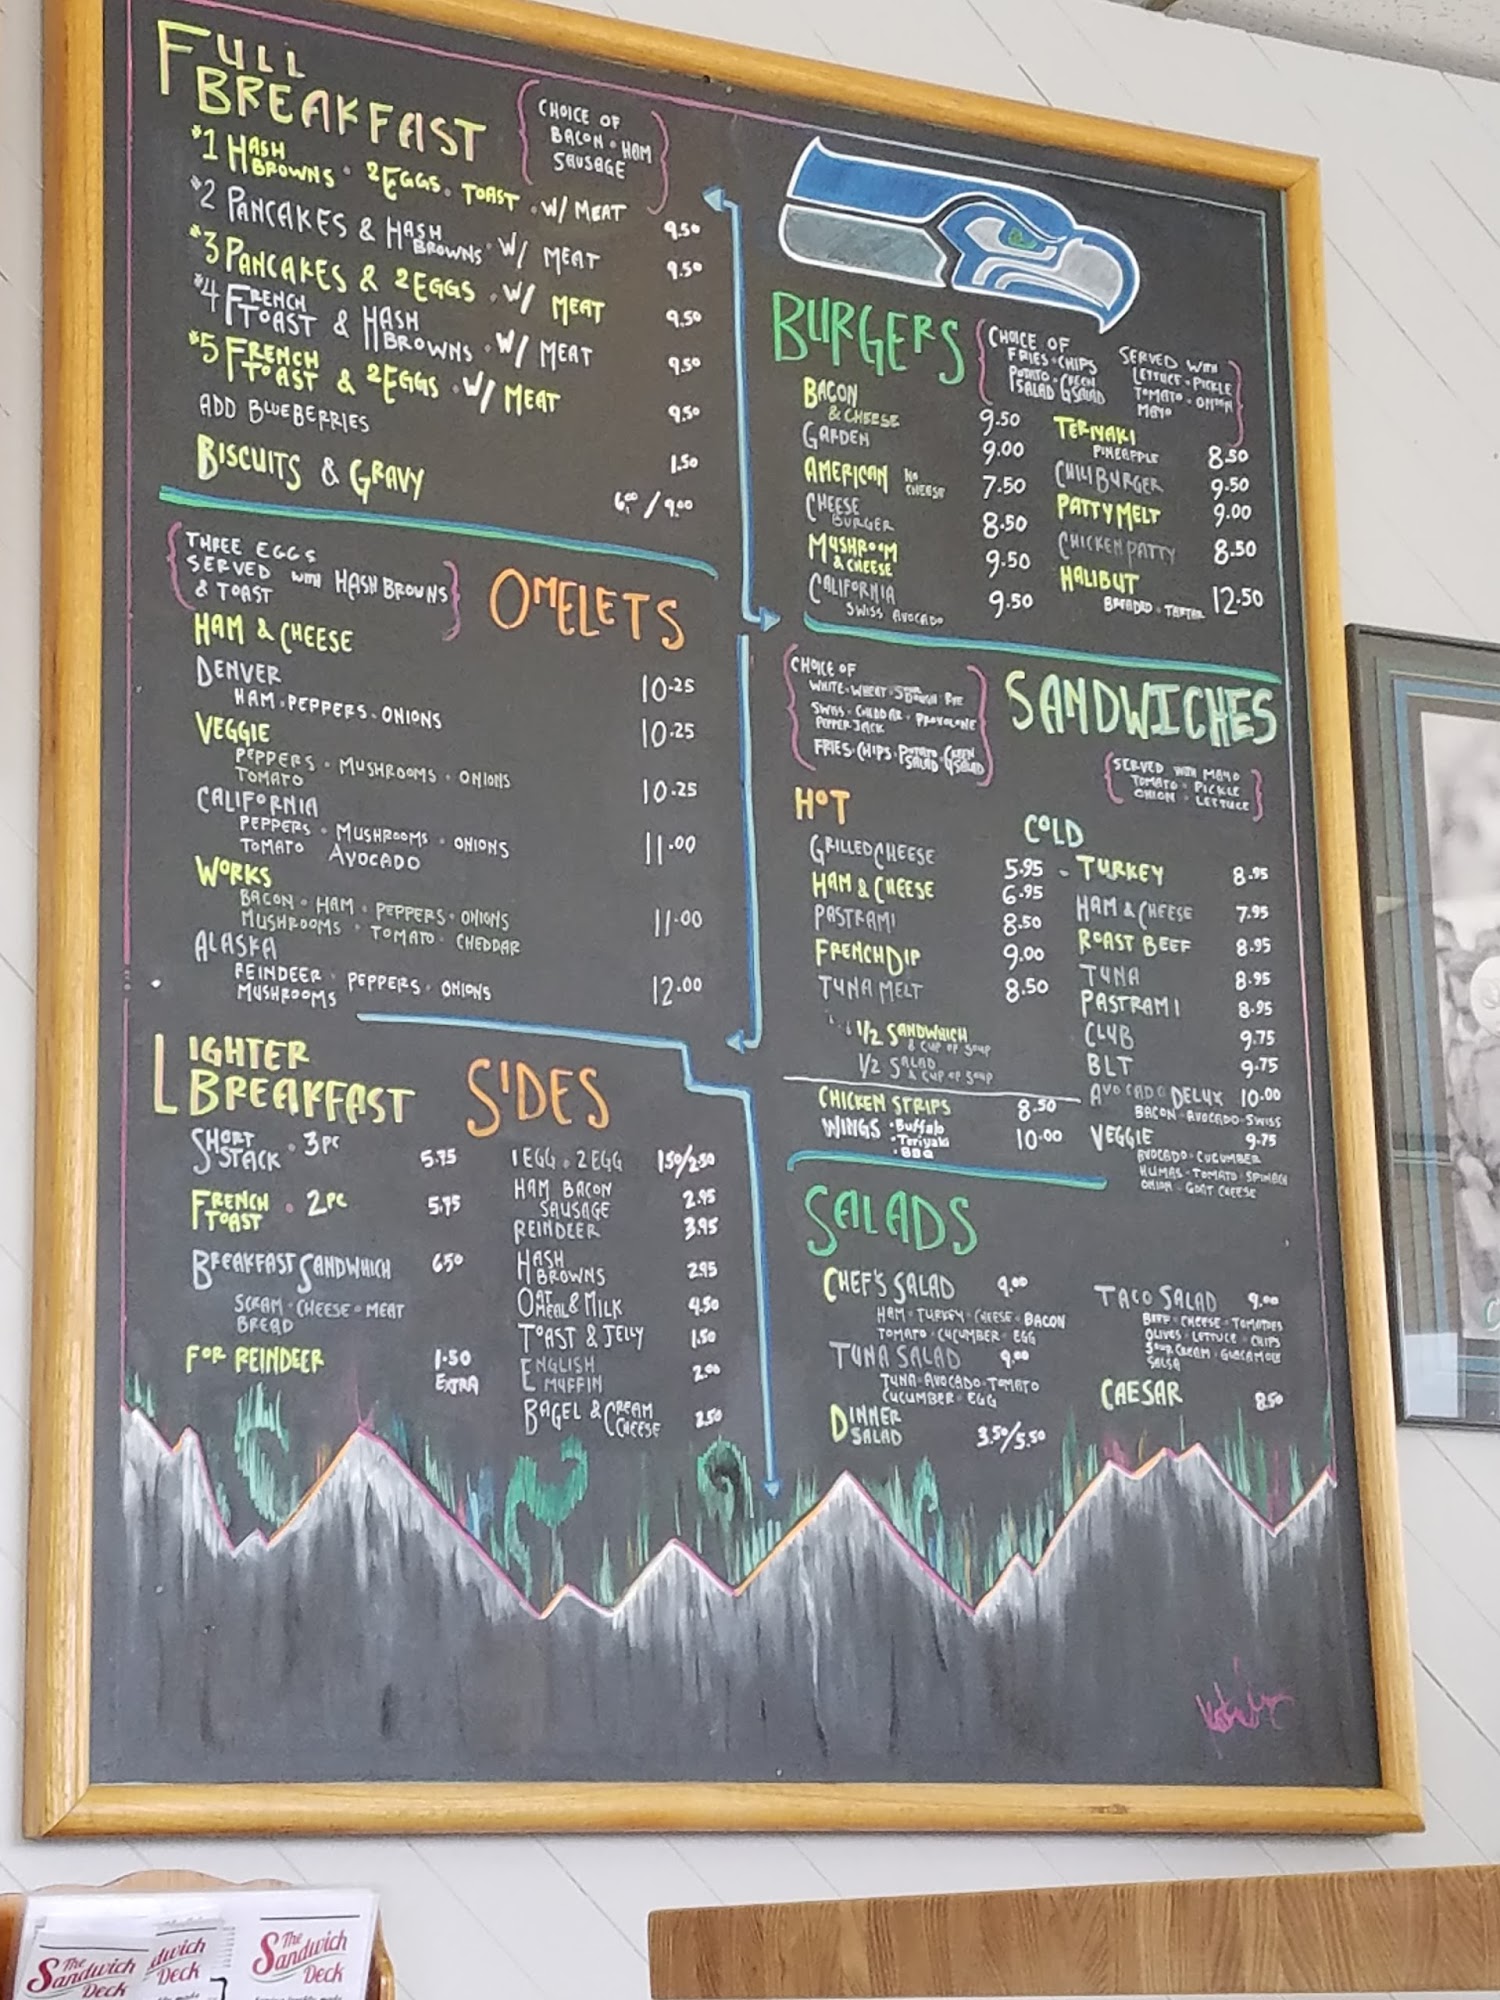 FULL BREAKFAST
CHOICE OF
BACON · HAM
SAUSAGE
#1 HASH BROWNS · 2 EGGS · TOAST · W/ MEAT 9.50
#2 PANCAKES & HASH BROWNS · W/ MEAT 9.50
#3 PANCAKES & 2 EGGS · W/ MEAT 9.50
#4 FRENCH TOAST & HASH BROWNS · W/ MEAT 9.50
#5 FRENCH TOAST & 2 EGGS · W/ MEAT 9.50
ADD BLUEBERRIES 1.50
BISCUITS & GRAVY 6.00 / 9.00
THREE EGGS
SERVED WITH HASH BROWNS
& TOAST
OMELETS
HAM & CHEESE 10.25
DENVER 10.25
HAM · PEPPERS · ONIONS
VEGGIE 10.25
PEPPERS · MUSHROOMS · ONIONS
TOMATO
CALIFORNIA 11.00
PEPPERS · MUSHROOMS · ONIONS
TOMATO AVOCADO
WORKS 11.00
BACON · HAM · PEPPERS · ONIONS
MUSHROOMS · TOMATO · CHEDDAR
ALASKA 12.00
REINDEER · PEPPERS · ONIONS
MUSHROOMS
LIGHTER BREAKFAST
SHORT STACK · 3 PC 5.75
FRENCH TOAST · 2 PC 5.75
BREAKFAST SANDWHICH 6.50
SCRAM · CHEESE · MEAT
BREAD
FOR REINDEER 1.50
EXTRA
SIDES
1 EGG · 2 EGG 1.50/2.50
HAM BACON
SAUSAGE 2.95
REINDEER 3.95
HASH BROWNS 2.95
OATMEAL & MILK 4.50
TOAST & JELLY 1.50
ENGLISH MUFFIN 2.00
BAGEL & CREAM CHEESE 2.50
BURGERS
CHOICE OF
FRIES · CHIPS
POTATO SALAD · GREEN SALAD
SERVED WITH
LETTUCE · PICKLE
TOMATO · ONION
MAYO
BACON & CHEESE 9.50
GARDEN 9.00
AMERICAN NO CHEESE 7.50
CHEESE BURGER 8.50
MUSHROOM & CHEESE 9.50
CALIFORNIA 9.50
SWISS AVOCADO
TERIYAKI
PINEAPPLE 8.50
CHILI BURGER 9.50
PATTY MELT 9.00
CHICKEN PATTY 8.50
HALIBUT
BREADED · TARTAR 12.50
CHOICE OF
WHITE · WHEAT · SOUR DOUGH RYE
SWISS · CHEDDAR · PROVOLONE
PEPPER JACK
FRIES · CHIPS · POTATO SALAD · GREEN SALAD
SANDWICHES
SERVED WITH MAYO
TOMATO · PICKLE
ONION · LETTUCE
HOT
GRILLED CHEESE 5.95
HAM & CHEESE 6.95
PASTRAMI 8.50
FRENCH DIP 9.00
TUNA MELT 8.50
1/2 SANDWHICH
& CUP OF SOUP
1/2 SALAD
& CUP OF SOUP
CHICKEN STRIPS 8.50
WINGS · Buffalo 10.00
· Teriyaki
· BBQ
COLD
TURKEY 8.95
HAM & CHEESE 7.95
ROAST BEEF 8.95
TUNA 8.95
PASTRAMI 8.95
CLUB 9.75
BLT 9.75
AVOCADO DELUX 10.00
BACON · AVOCADO · SWISS
VEGGIE 9.75
AVOCADO · CUCUMBER
HUMAS · TOMATO · SPINACH
ONION · GOAT CHEESE
SALADS
CHEF'S SALAD 9.00
HAM · TURKEY · CHEESE · BACON
TOMATO · CUCUMBER · EGG
TUNA SALAD 9.00
TUNA · AVOCADO · TOMATO
CUCUMBER · EGG
DINNER SALAD 3.50/5.50
TACO SALAD 9.00
BEEF · CHEESE · TOMATOES
OLIVES · LETTUCE · CHIPS
SOUR CREAM · GUACAMOLE
SALSA
CAESAR 8.50
The
Sandwich
Deck
dwich
Deck
The
Sandwich
Deck